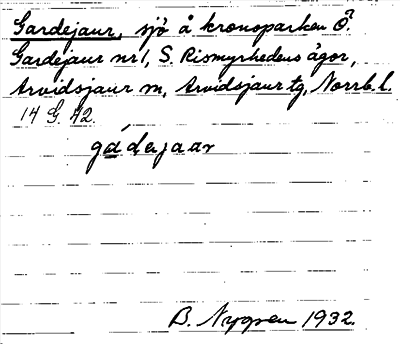 Gardejaur, sjö å kronoparken Ö.
Gardejaur nr 1, S. Rismyrhedens ägor,
Arvidsjaur sn, Arvidsjaur tg, Norrb. l.
14 G. 42.
gádejaar
B. Nygren 1932.